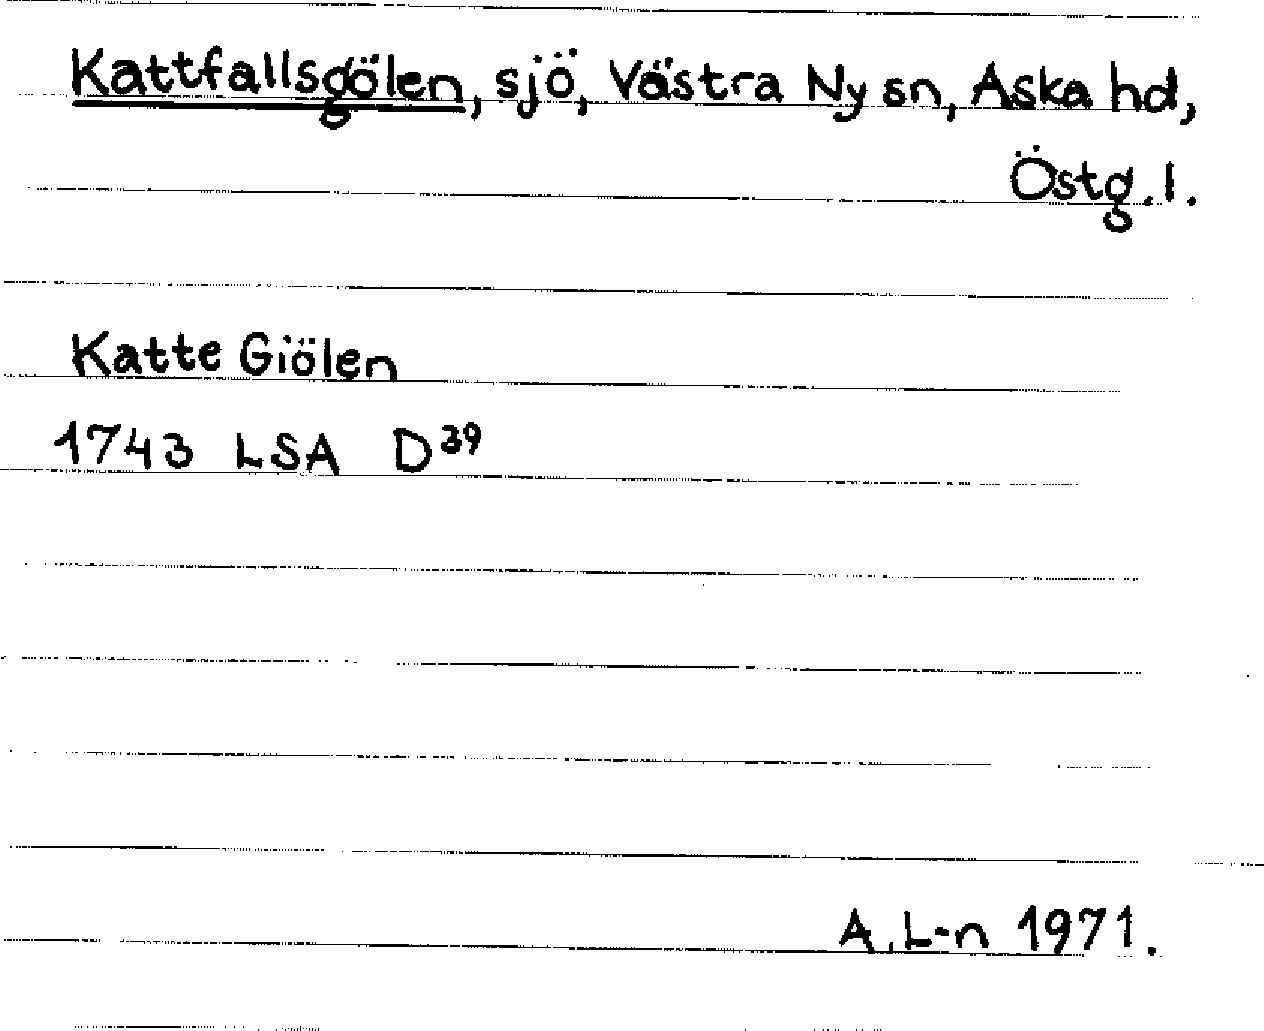 Kattfallsgölen, sjö, Västra Ny sn, Aska hd,
Östg.l.
Katte Giölen
1743 LSA D³⁹
A.L-n 1971.